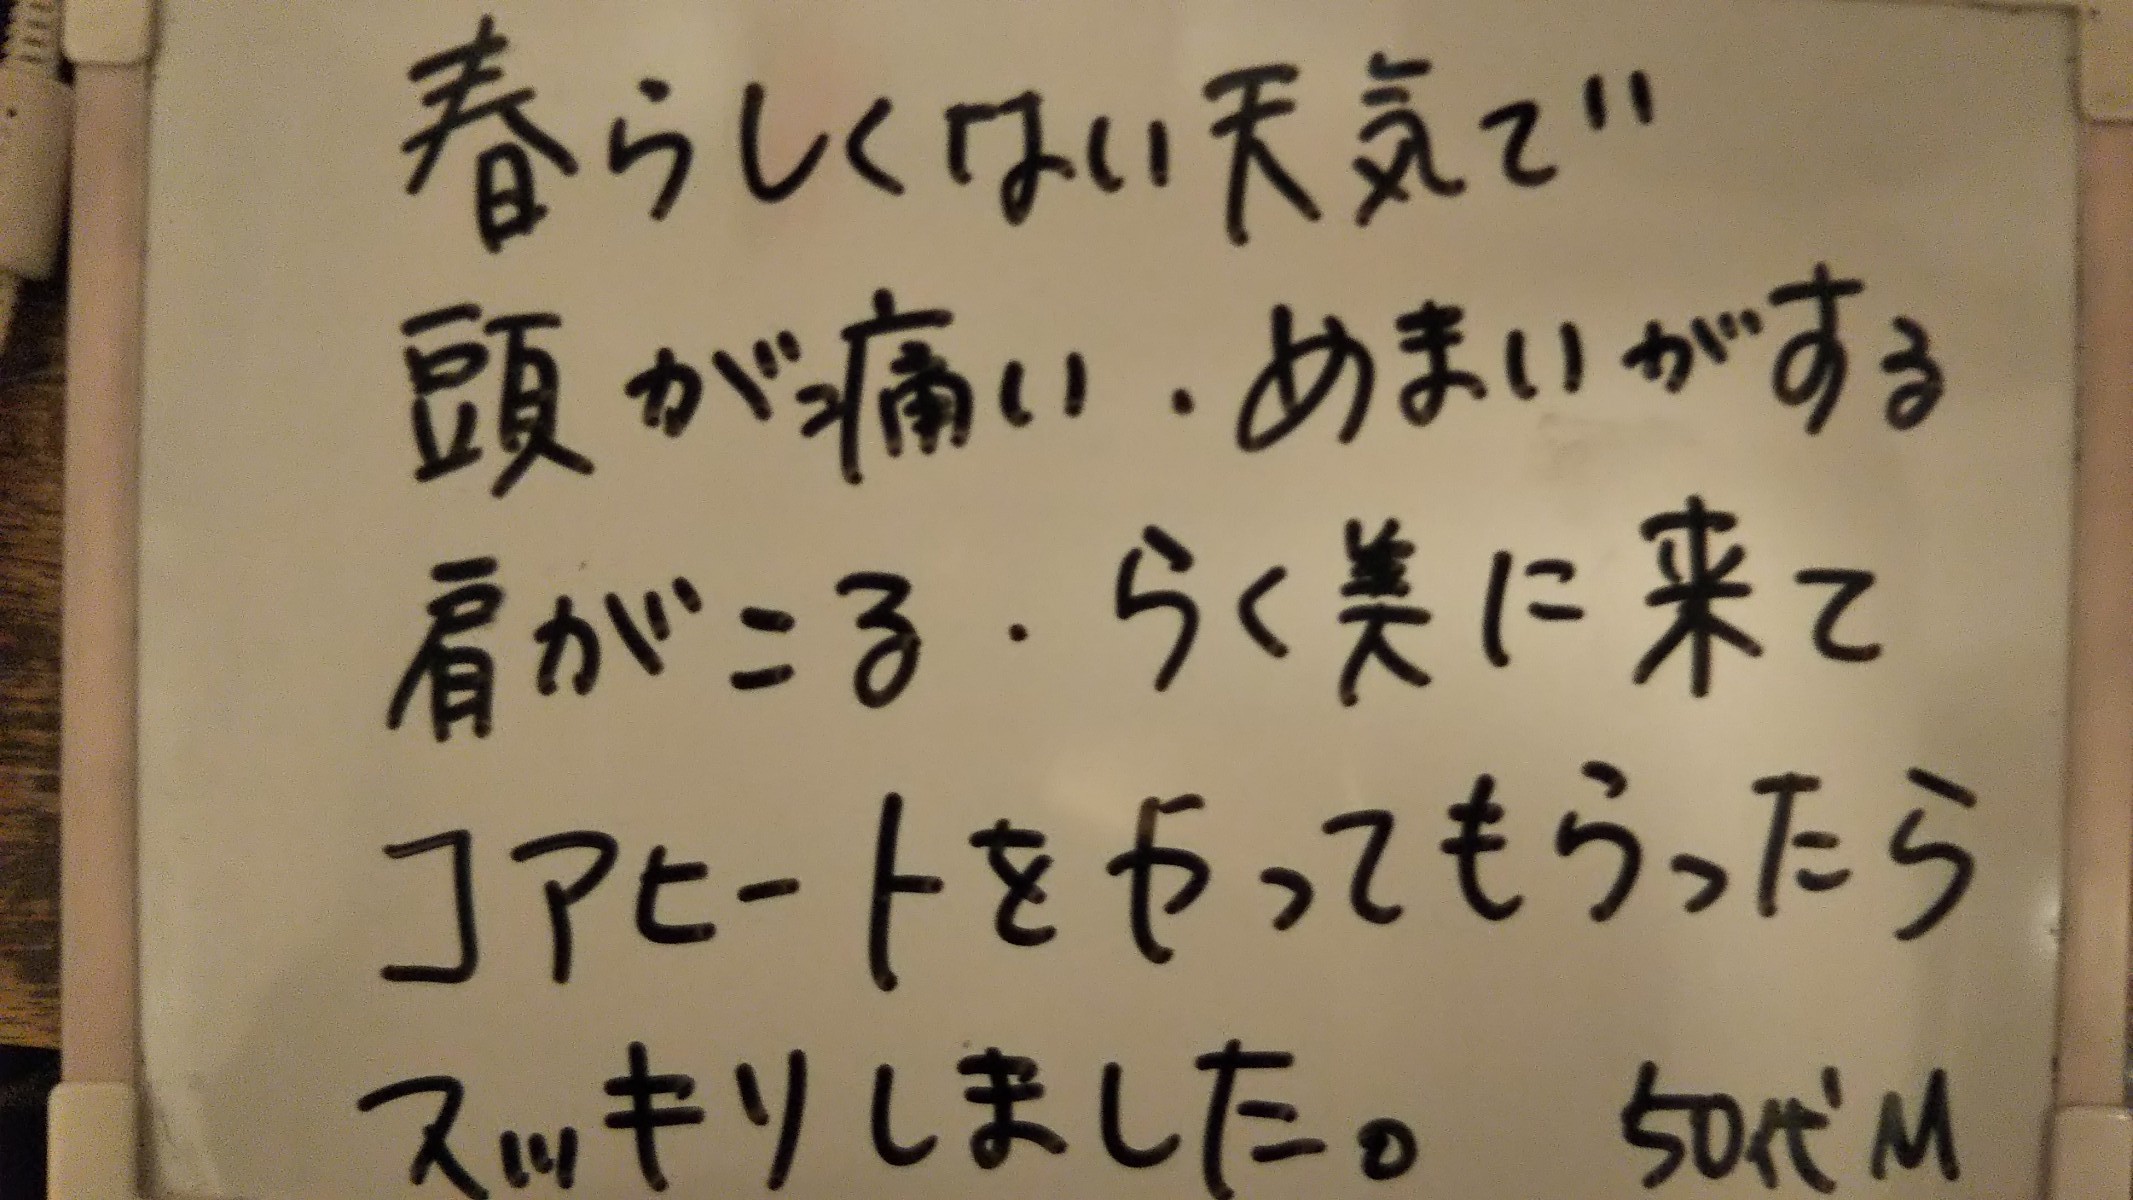 春らしくない天気で
頭が痛い・めまいがする
肩がこる・らく美に来て
コアヒートをやってもらったら
スッキリしました。 50代M